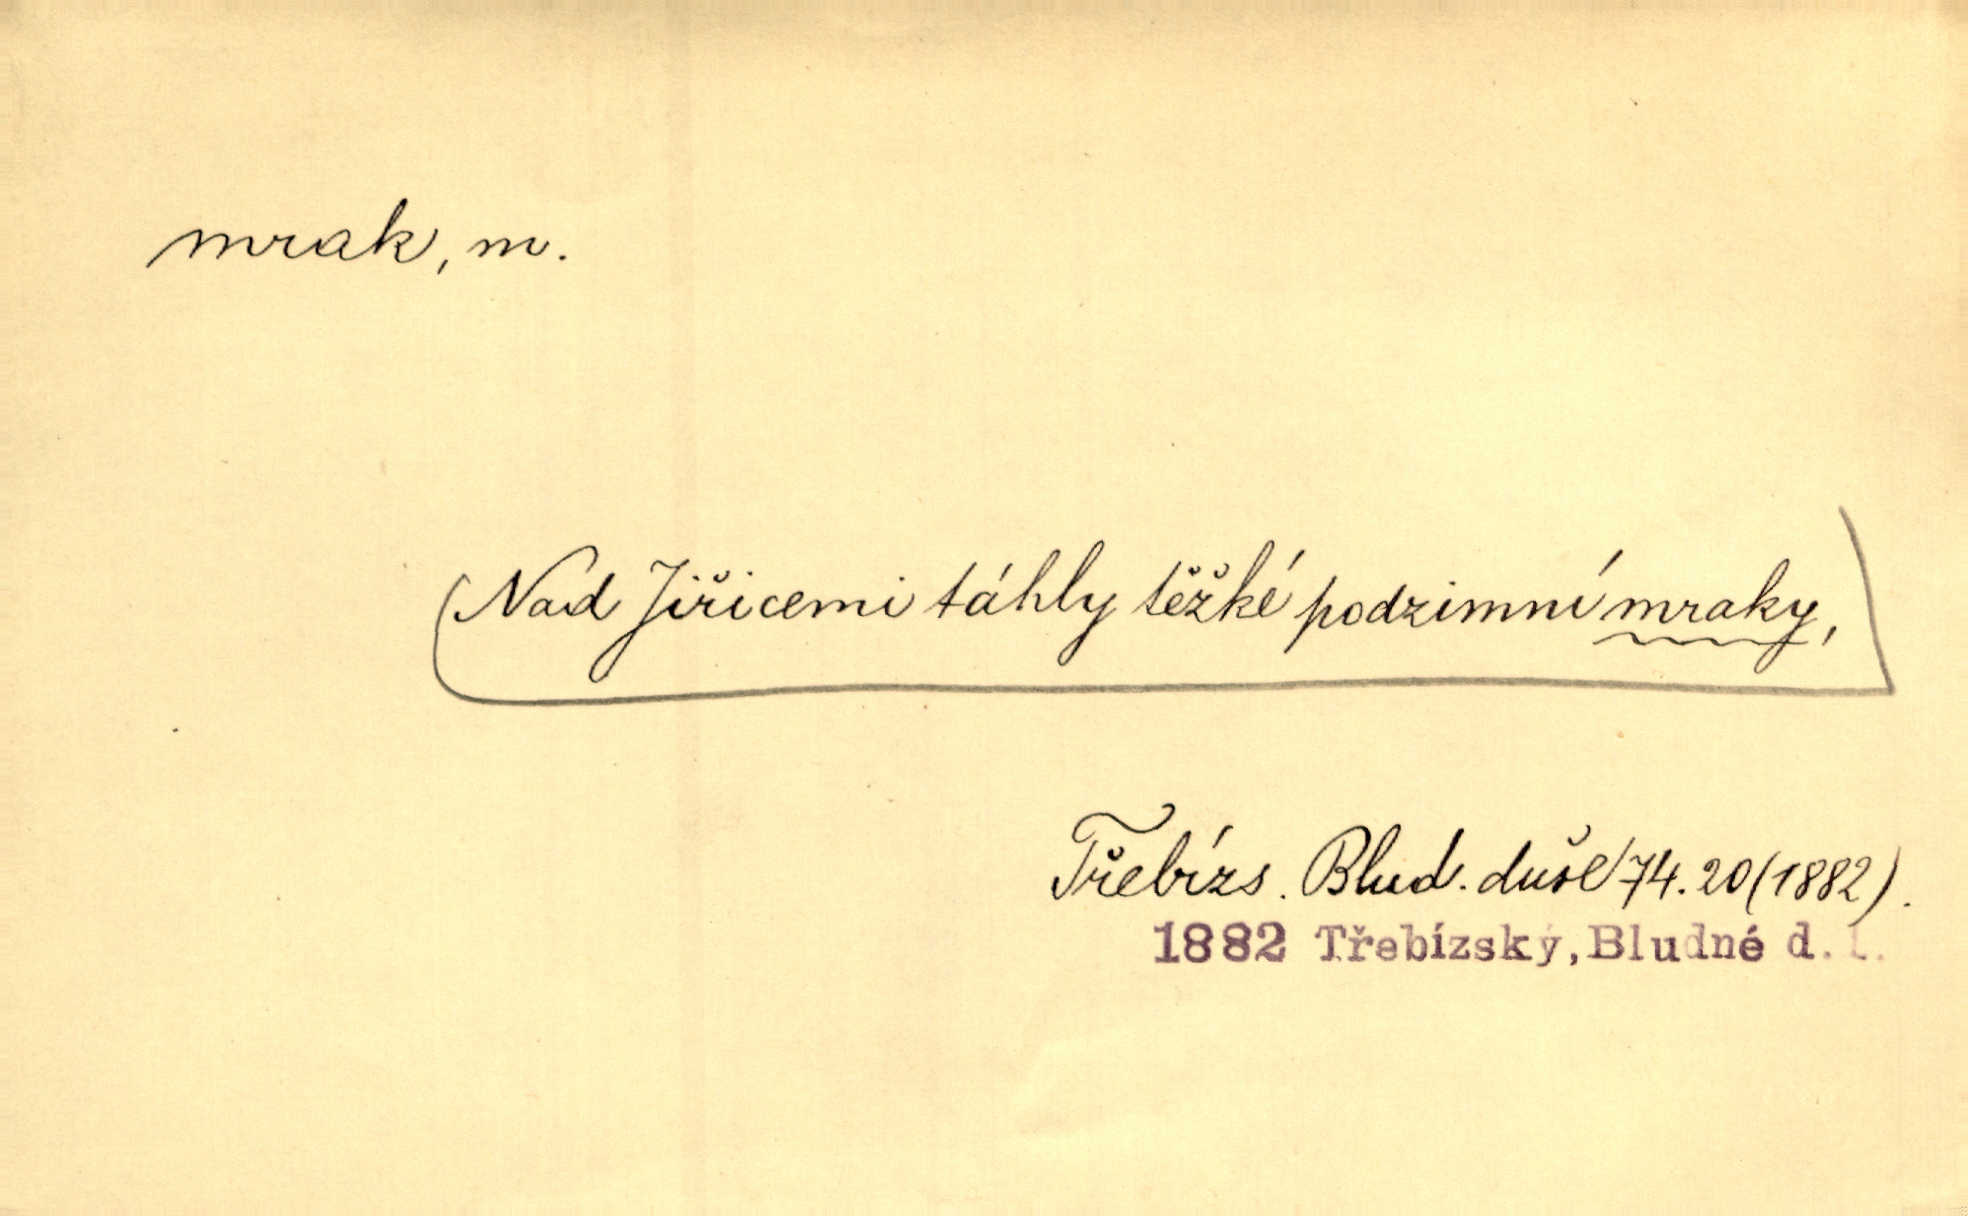 mrak, m.
Nad Jiřicemi táhly těžké podzimní mraky,
Třebízs. Blud. duše 74.20 (1882).
1882 Třebízský, Bludné d. I.